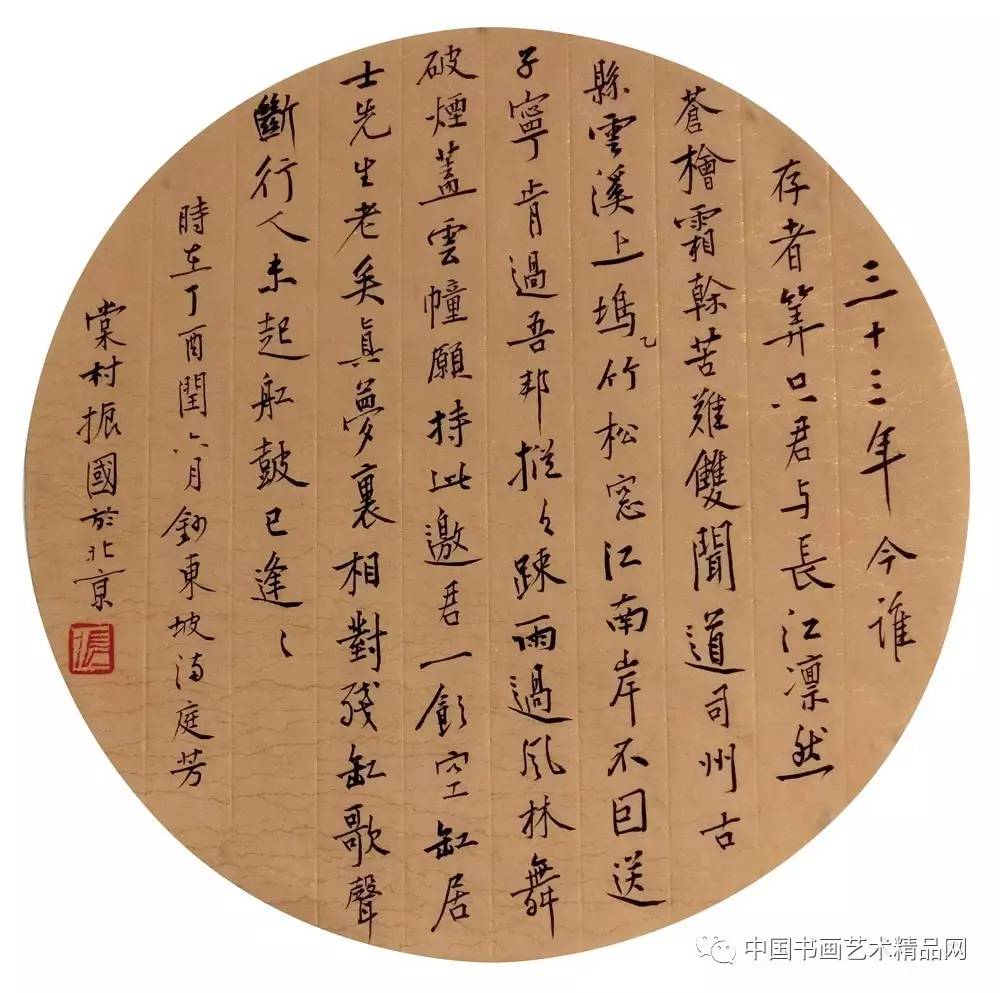 三十三年今谁
存者算只君与長江凛然
蒼檜霜幹苦難雙聞道司州古
縣雲溪上塢竹松窓江南岸不回送
子寧肯過吾邦摐々疎雨過風林舞
破煙蓋雲幢願持此邀君一飲空缸居
士先生老矣真夢裏相對殘缸歌聲
斷行人未起舡鼓已逢々
時在丁酉閏六月鈔東坡滿庭芳
棠村振國於北京
中国书画艺术精品网